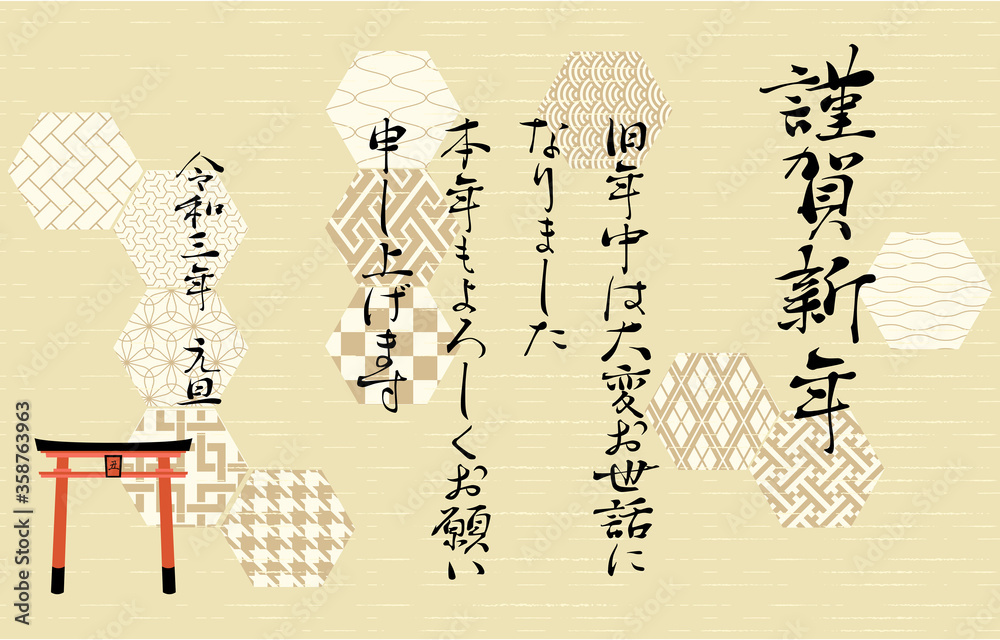 謹賀新年
旧年中は大変お世話に
なりました
本年もよろしくお願い
申し上げます
令和三年 元旦
丑
Adobe Stock | #358763963